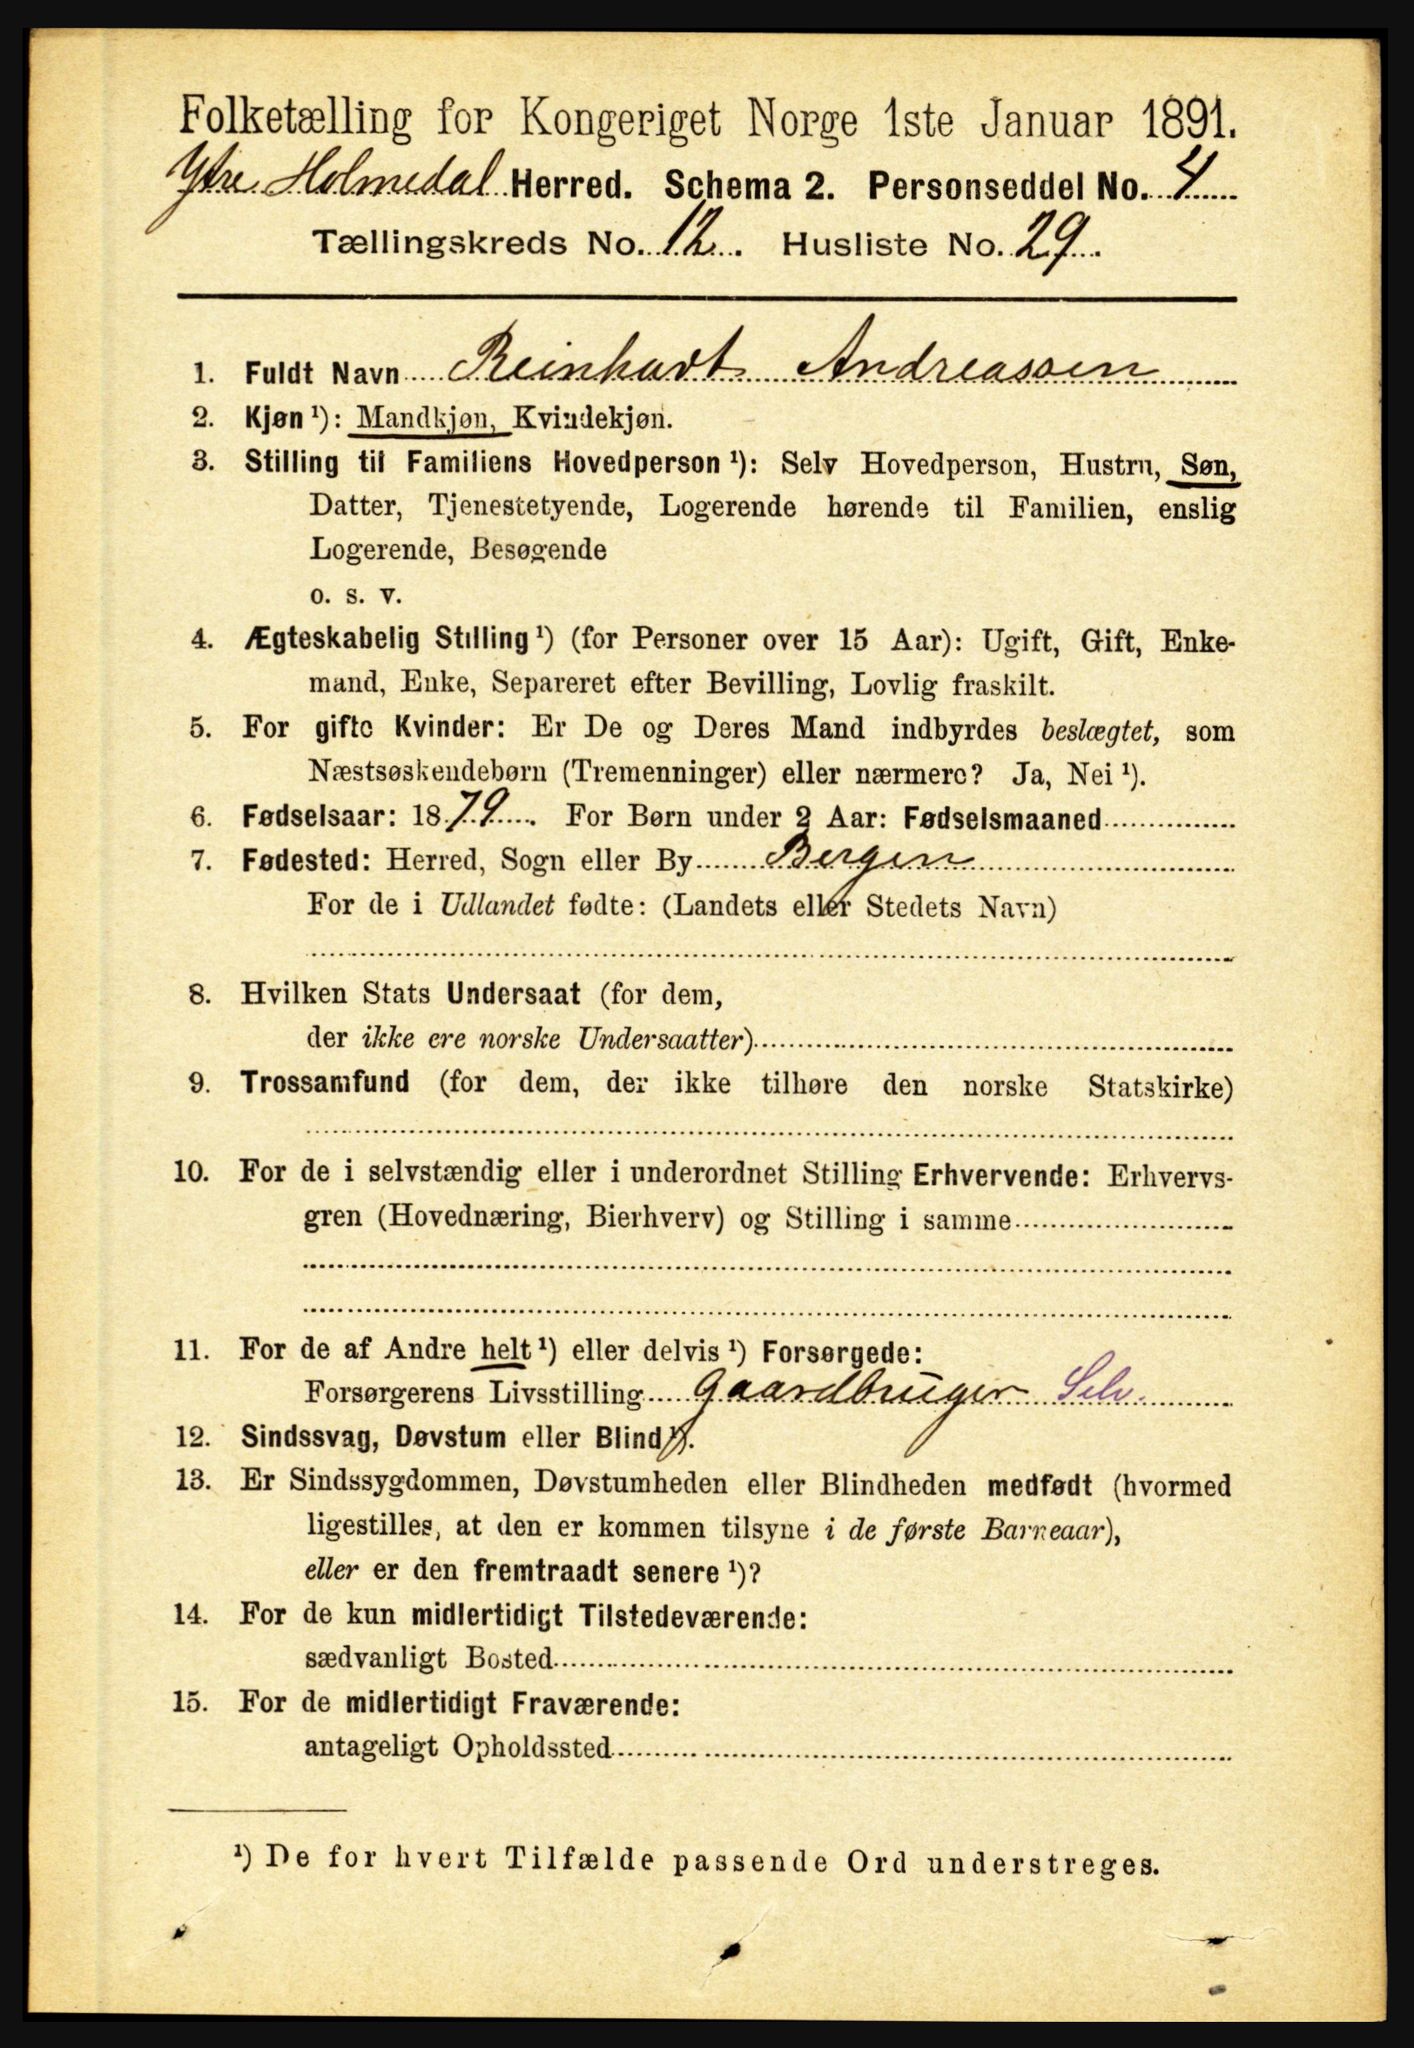 Folketælling for Kongeriget Norge 1ste Januar 1891.
Ytre Holmedal Herred. Schema 2. Personseddel No. 4
Tællingskreds No. 12. Husliste No. 29.
1. Fuldt Navn Reinhardt Andreassen
2. Kjøn ¹): Mandkjøn, Kvindekjøn.
3. Stilling til Familiens Hovedperson ¹): Selv Hovedperson, Hustru, Søn,
Datter, Tjenestetyende, Logerende hørende til Familien, enslig
Logerende, Besøgende
o. s. v.
4. Ægteskabelig Stilling ¹) (for Personer over 15 Aar): Ugift, Gift, Enke-
mand, Enke, Separeret efter Bevilling, Lovlig fraskilt.
5. For gifte Kvinder: Er De og Deres Mand indbyrdes beslægtet, som
Næstsøskendebørn (Tremenninger) eller nærmere? Ja, Nei ¹).
6. Fødselsaar: 1879. For Børn under 2 Aar: Fødselsmaaned
7. Fødested: Herred, Sogn eller By Bergen
For de i Udlandet fødte: (Landets eller Stedets Navn)
8. Hvilken Stats Undersaat (for dem,
der ikke ere norske Undersaatter)
9. Trossamfund (for dem, der ikke tilhøre den norske Statskirke)
10. For de i selvstændig eller i underordnet Stilling Erhvervende: Erhvervs-
gren (Hovednæring, Bierhverv) og Stilling i samme
11. For de af Andre helt ¹) eller delvis ¹) Forsørgede:
Forsørgerens Livsstilling Gaardbruger Selv.
12. Sindssvag, Døvstum eller Blind ¹).
13. Er Sindssygdommen, Døvstumheden eller Blindheden medfødt (hvormed
ligestilles, at den er kommen tilsyne i de første Barneaar),
eller er den fremtraadt senere ¹)?
14. For de kun midlertidigt Tilstedeværende:
sædvanligt Bosted
15. For de midlertidigt Fraværende:
antageligt Opholdssted
¹) De for hvert Tilfælde passende Ord understreges.